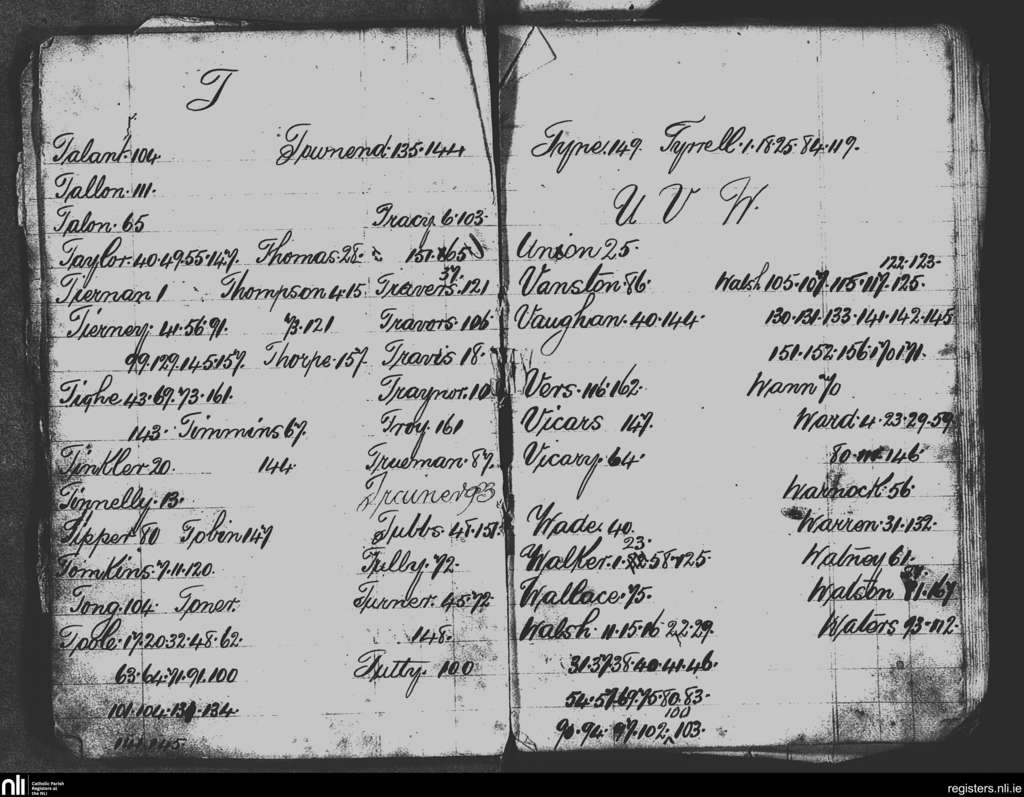 T
Talant. 104
Townend. 135. 144
Tallon. 111.
Talon. 65
Tracy. 6. 103.
Taylor. 40. 49. 55. 147. Thomas. 28.
151. 165
Tiernan 1
Thompson 4. 15.
37.
Travers. 121
Tierney. 41. 56. 91.
73. 121
Travors. 106
99. 129. 145. 157.
Thorpe. 157.
Travis 18.
Tighe 43. 69. 73. 161.
Traynor. 10
143. Timmins 67.
Troy. 161
Tinkler. 20.
144.
Trueman. 87.
Tinnelly. 13.
Trainer 93
Tipper 80 Tobin 147
Tubbs. 48. 151.
Tomkins. 7. 11. 120.
Tully. 72.
Tong. 104. Toner.
Turner. 45. 72.
Toole. 17. 20. 32. 48. 62.
148.
63. 64. 71. 91. 100
Tutty. 100
101. 104. 131. 134.
141. 145.
Tyne. 149. Tyrrell. 1. 18. 25. 84. 119.
U V W.
Union 25
122. 123.
Vanston. 86.
Walsh 105. 107. 115. 117. 125.
Vaughan. 40. 144.
130. 131. 133. 141. 142. 145
151. 152. 156. 170. 171.
Vers. 116. 162.
Wann 70
Vicars 147.
Ward. 4. 23. 29. 59.
Vicary. 64.
80. 146.
Warnock. 56
Wade. 40.
Warren. 31. 132.
23.
Walker. 1. 58. 125
Watney 61.
Wallace. 75.
Watson 167
Walsh. 11. 15. 16 22. 29.
Waters 93. 112.
31. 37. 38. 40. 41. 46.
54. 57. 69. 75. 80. 83.
100
90. 94. 97. 102. 103.
nli
Catholic Parish
Registers at
the NLI
registers.nli.ie